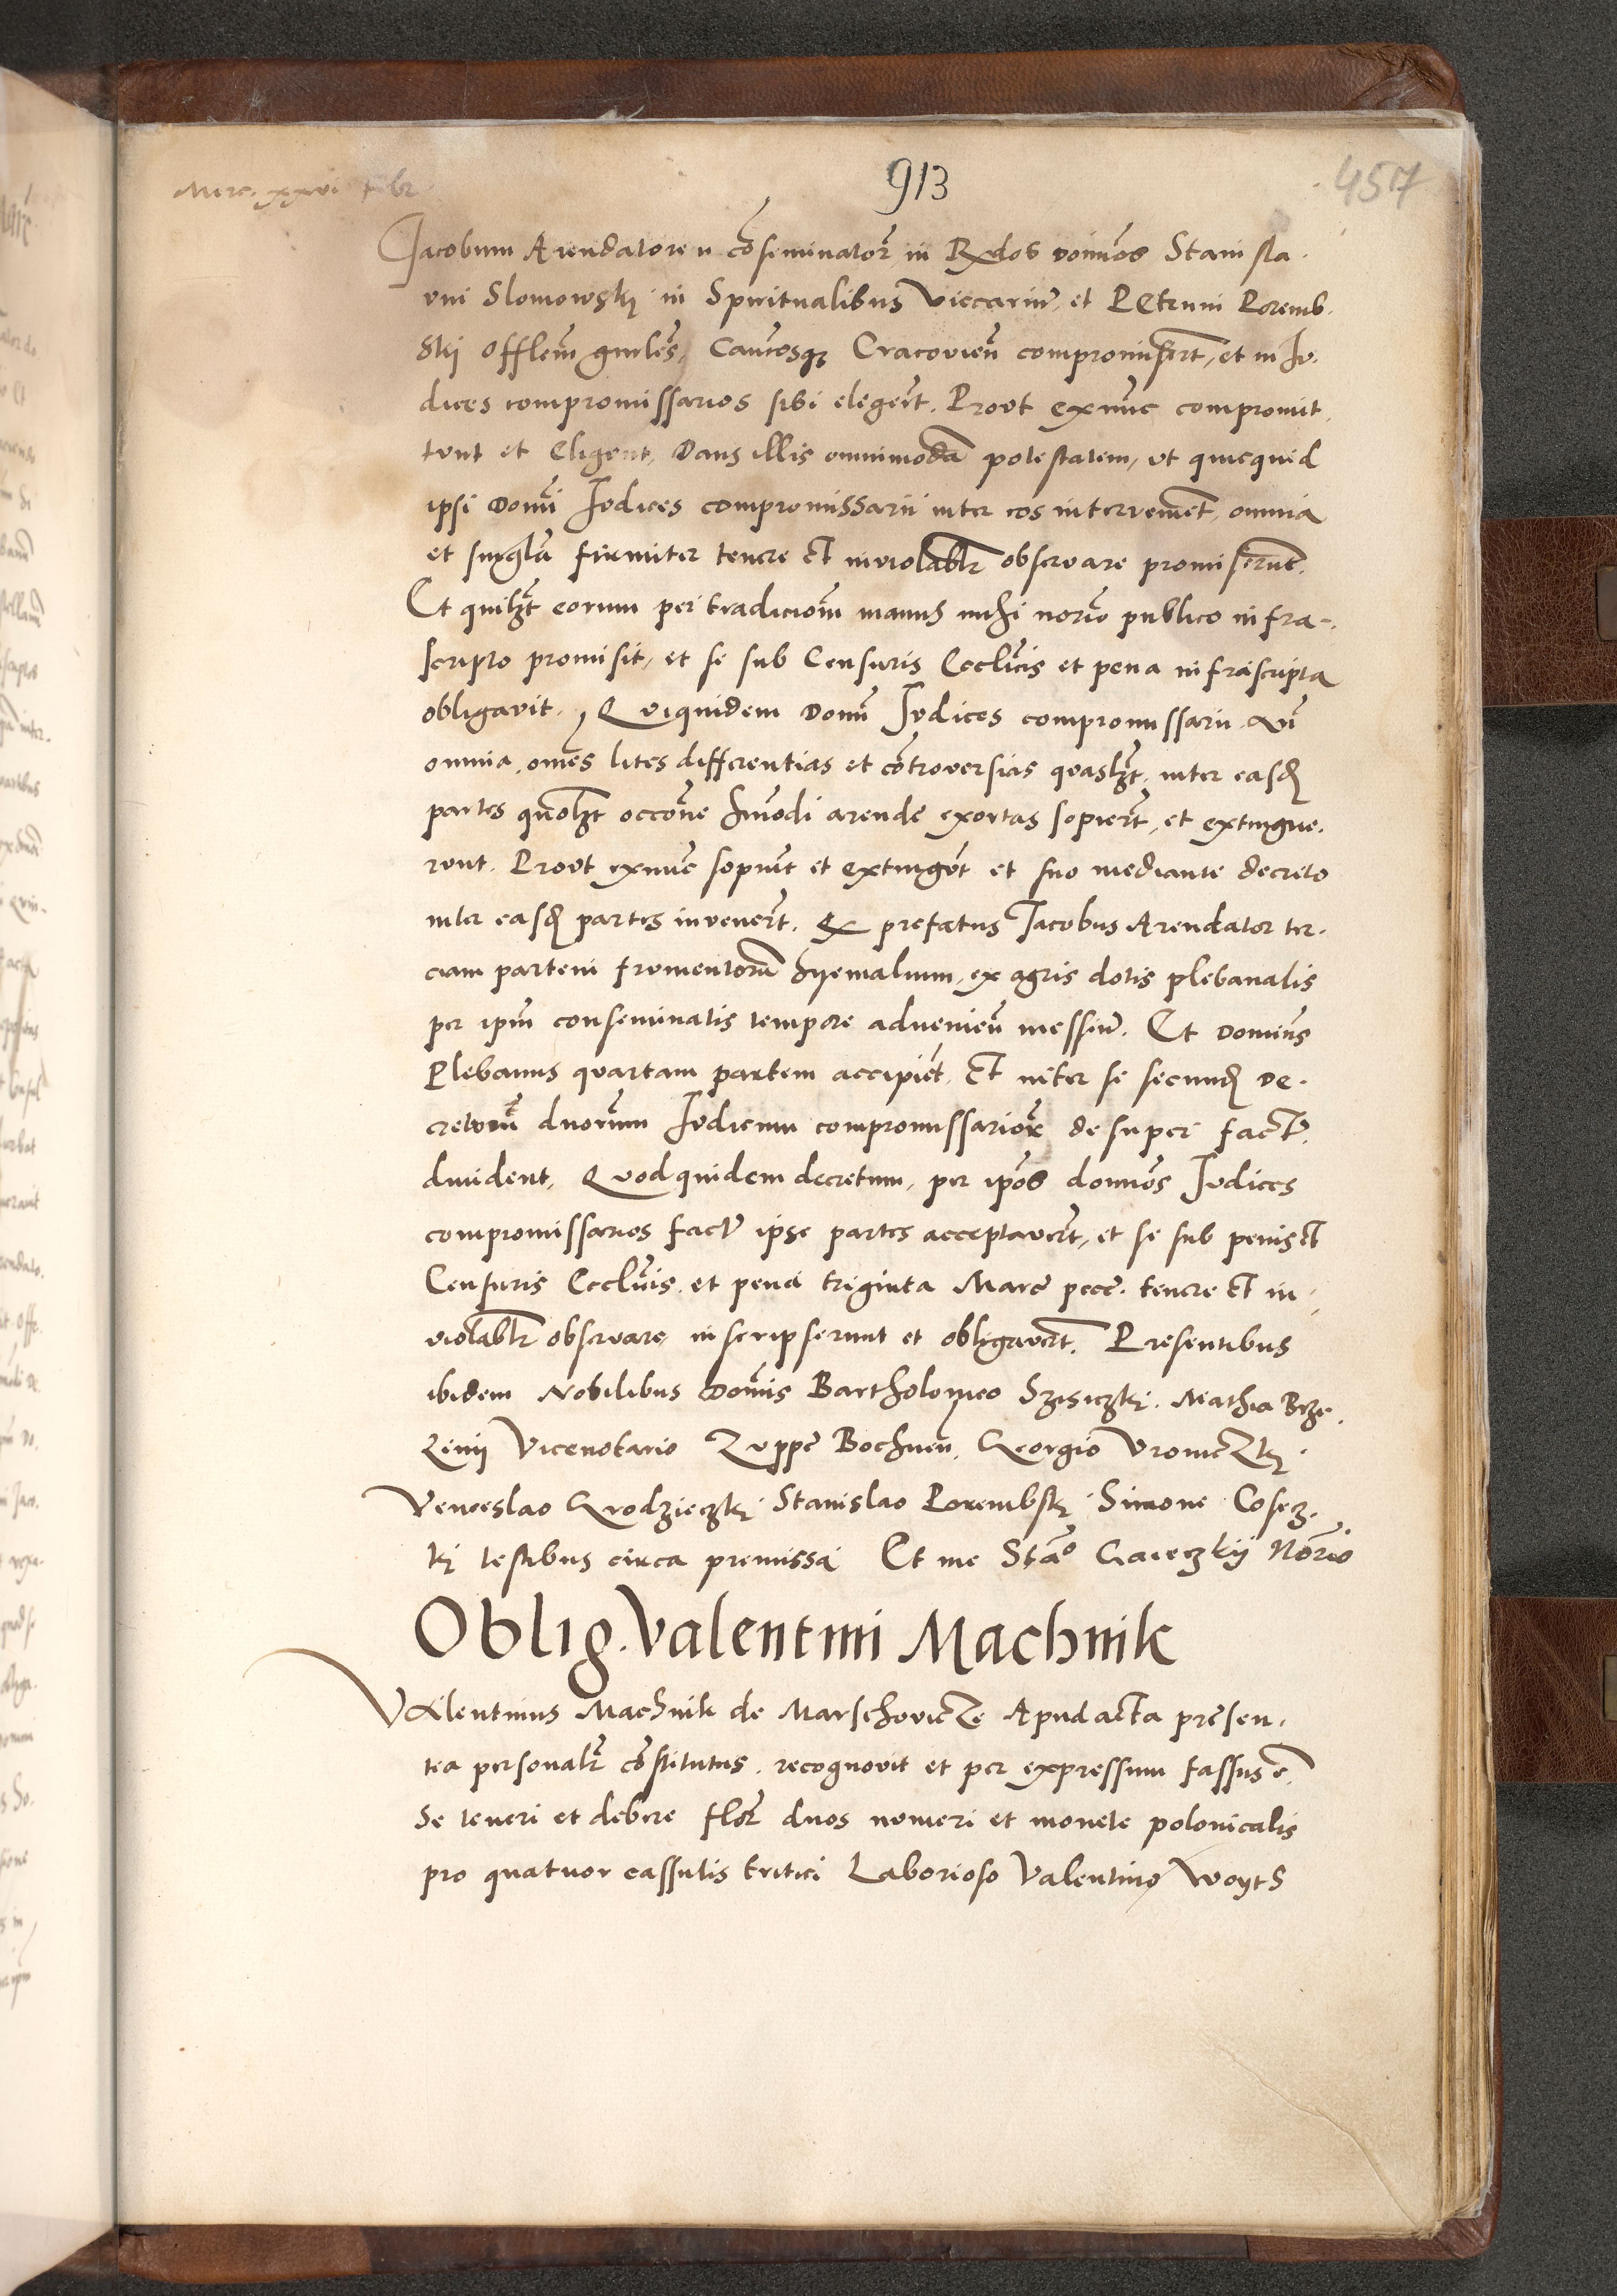 913
457
Merc. xxvi Febr
Jacobum Arendatorem co͞seminator͞ in Rxdos domi͞os Stanisla.
um Slomowskÿ in Spiritualibus Viccariu͞. et Petrum Poremb.
skij Offle͞m gn͞les. Canco͞sq3 Cracovien͞ compromiser͞t, et in Ju.
dices compromissarios sibi eleger͞t. Provt exnu͞c compromit.
tunt et Eligent, Dans illis omnimoda͞ potestatem, vt quicquid
ipsi Dom͞i Judices compromissarii inter eos intervenie͞t, omnia
et singl͞a firmiter tenere et inviolabl͞r observare promiseru͞t.
Et quilib͞t eorum per tradicio͞m manus mihi nor͞io publico infra-
scripto promisit, et se sub Censuris Eccl͞icis et pena infrascripta
obligavit. Quiquidem Dom͞i Judices compromissarii an͞
omnia, om͞es lites differentias et co͞troversias quasl͞t, inter easd͞
partes quol͞t occo͞ne h͞moi arende exortas sopier͞t, et extingue.
runt. Provt exnu͞c sopiu͞t et extingu͞t et suo mediante decreto
inter easd͞ partes invener͞t. Qx prefatus Jacobus Arendator ter.
ciam partem frumentoru͞ hyemalium, ex agris dotis plebanalis
per ip͞m conseminatis tempore advenien͞ messiu͞. Et Domin͞s
Plebanus quartam partem accipie͞t. Et inter se secund͞ De.
cretum͞ duorum Judicum compromissarior͞ desuper fact͞.
dividet. Quodquidem decretum, per ip͞os domi͞os Judices
compromissarios fact͞ ipse partes acceptaver͞t, et se sub penis et
Censuris Eccl͞icis, et pena triginta Marc͞ pecc͞. tenere et in
violabl͞r observare, inscripserunt et obligaver͞t. Presentibus
ibidem Nobilibus Dom͞is Bartholomeo Szisiczkÿ. Mathia Brze.
Zinÿ Vicenotario Zuppe Bochnen͞. Georgio VromeZkÿ.
Venceslao Grodzieczkÿ Stanislao Porembskÿ Simone Cosecz.
kÿ testibus circa premissa Et me Sta͞o Gaieczkÿ Nor͞io
Oblig. Valentini Machnik
Valentinus Machnik de MarschovicZe Apud acta presen.
tia personal͞r co͞stitutus. recognovit et per expressum fassus e͞.
Se teneri et debere flor͞ duos numeri et monete polonicalis
pro quatuor cassulis tritici Laborioso Valentino Woyts